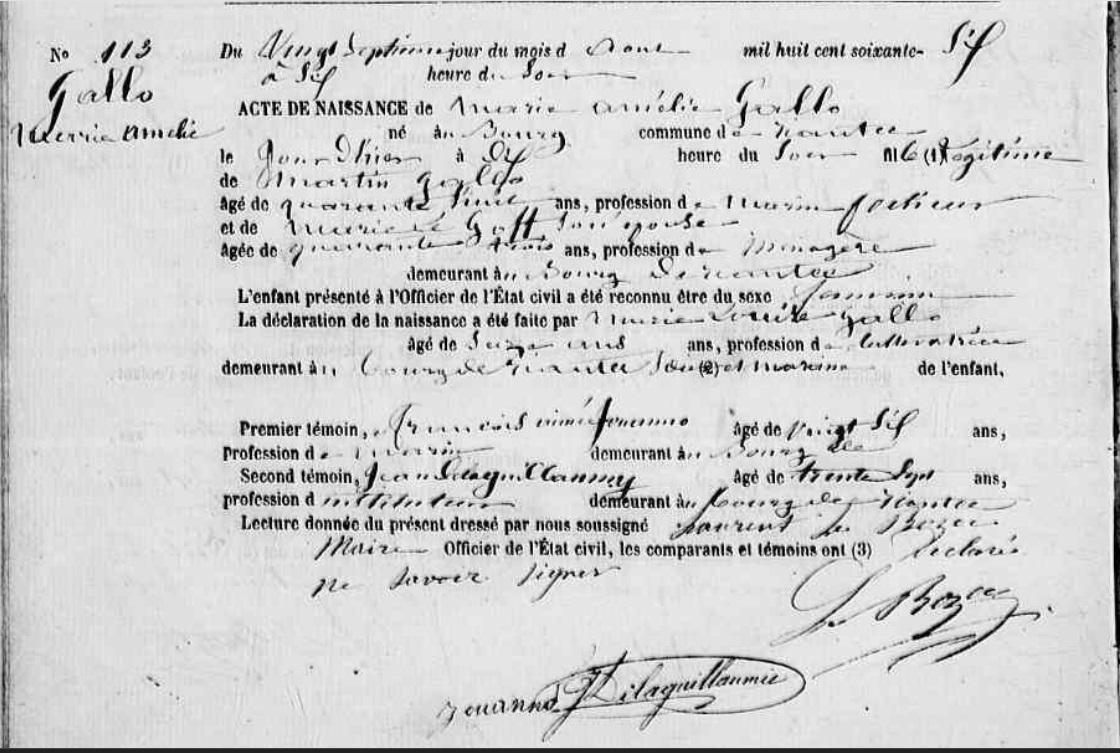 No 113
Gallo
Marie Amélie
Du Vingt Septième jour du mois d Aout mil huit cent soixante- Six
a Six heure du Soir
ACTE DE NAISSANCE de Marie Amélie Gallo
né au Bourg commune de
le Jour D'hier à Dix heure du Soir fille (1) Légitime
de Martin Gallo
âgé de quarante huit ans, profession de Marin
et de Marie Le Goff Son épouse
Agée de quarante trois ans, profession de Ménagère
demeurant au Bourg de
L'enfant présenté à l'Officier de l'État civil a été reconnu être du sexe féminin
La déclaration de la naissance a été faite par Marie Louise Gallo
âgé de Seize ans ans, profession de Cultivatrice
demeurant au bourg de Sœur (2) et marraine de l'enfant.
Premier témoin, François Jouanno âgé de Vingt Six ans,
Profession de Marin demeurant au Bourg de
Second témoin, Jean Delaguillaumie âgé de trente Sept ans,
profession d instituteur demeurant au bourg de
Lecture donnée du présent dressé par nous soussigné Laurent Le Bozec
Maire Officier de l'État civil, les comparants et témoins ont (3) Déclaré
ne Savoir Signer
Le Bozec
Jouanno Delaguillaumie